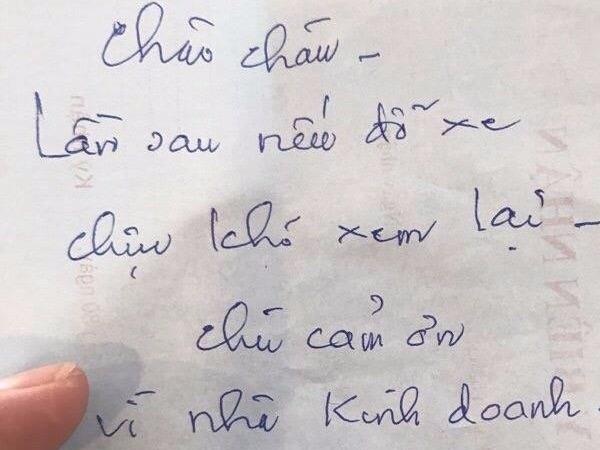 Chào cháu -
Lần sau nếu đỗ xe
chịu khó xem lại -
chú cảm ơn
vì nhà Kinh doanh.